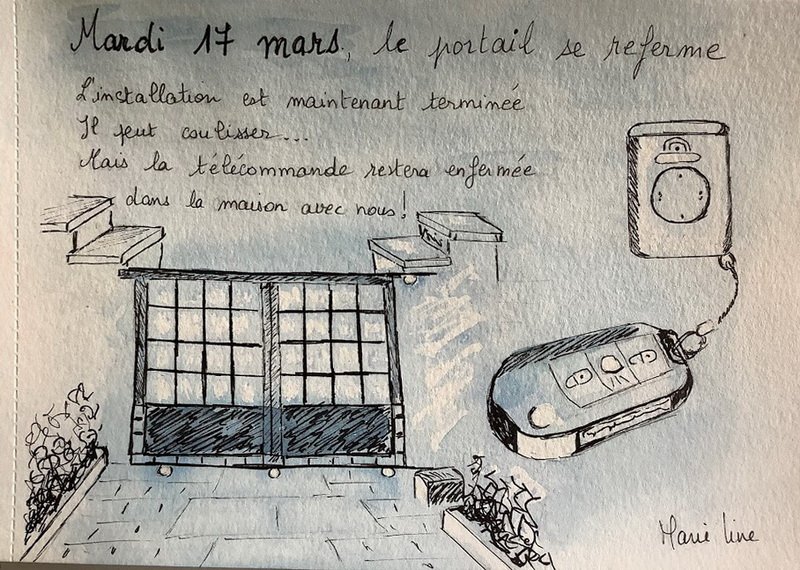 Mardi 17 mars, le portail se referme
L'installation est maintenant terminée
Il peut coulisser...
Mais la télécommande restera enfermée
dans la maison avec nous!
Marie line